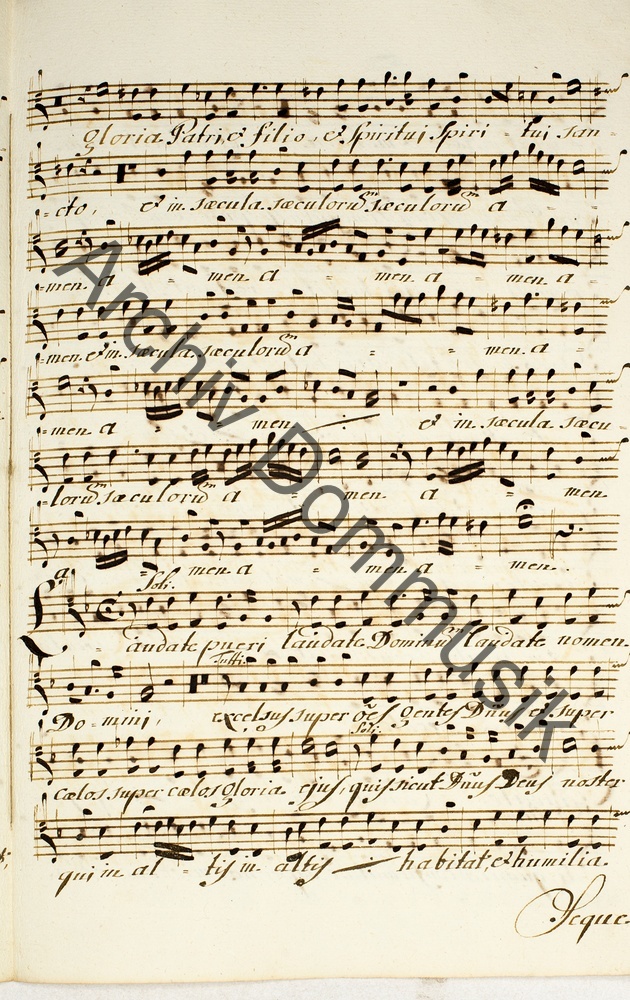 gloria Patri, & filio, & Spiritui Spiri - tui san-
=cto, & in sæcula sæculorũ sæculorũ a
=men. a - men. a - men. a - men. a -
=men. & in sæcula sæculorũ a - - men. a -
=men. a - men & in sæcula sæcu-
=lorũ sæculorũ a - men. a - men.
a - men. a - men. a - men.
Soli.
Laudate pueri laudate Dominũ laudate nomen
Tutti
Do-mini, excelsus super oẽs gentes Dñus & super
Soli.
cælos super cælos gloria ejus, quis sicut Dñus Deus noster
qui in al - tis in altis habitat, & humilia.
Seque.
Archiv Dommusik